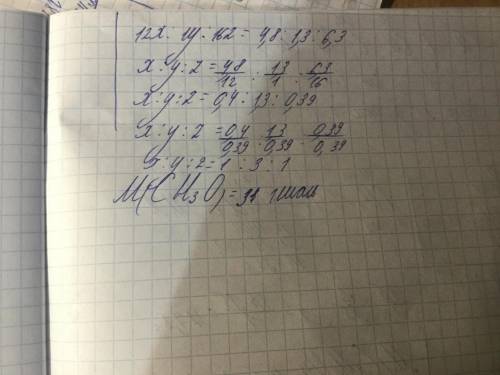 12x : 1y : 16z = 4,8 : 1,3 : 6,3
x : y : z = 4,8/12 : 1,3/1 : 6,3/16
x : y : z = 0,4 : 1,3 : 0,39
x : y : z = 0,4/0,39 : 1,3/0,39 : 0,39/0,39
x : y : z = 1 : 3 : 1
M(CH₃O) = 31 г/моль